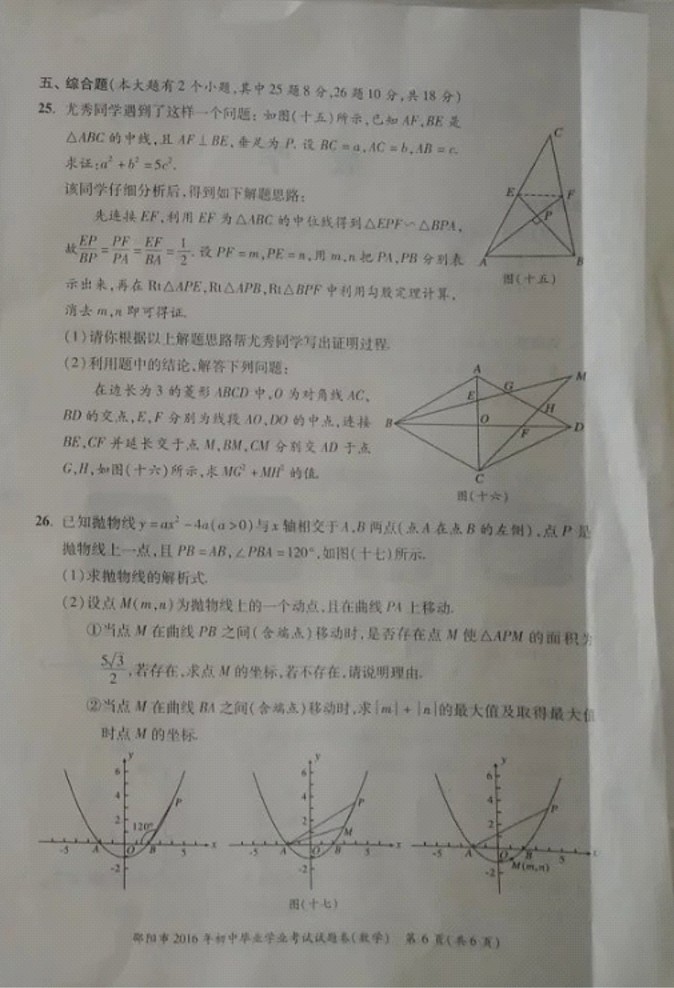 五、综合题(本大题有2个小题,其中25题8分,26题10分,共18分)
25. 尤秀同学遇到了这样一个问题:如图(十五)所示,已知AF,BE是
△ABC的中线,且AF⊥BE,垂足为P.设BC=a,AC=b,AB=c.
求证:a²+b²=5c².
该同学仔细分析后,得到如下解题思路:
先连接EF,利用EF为△ABC的中位线得到△EPF∽△BPA,
故EP/BP=PF/PA=EF/BA=1/2.设PF=m,PE=n,用m,n把PA,PB分别表
示出来,再在Rt△APE,Rt△APB,Rt△BPF中利用勾股定理计算,
消去m,n即可得证.
(1)请你根据以上解题思路帮尤秀同学写出证明过程.
(2)利用题中的结论,解答下列问题:
在边长为3的菱形ABCD中,O为对角线AC,
BD的交点,E,F分别为线段AO,DO的中点,连接
BE,CF并延长交于点M,BM,CM分别交AD于点
G,H,如图(十六)所示,求MG²+MH²的值.
C
E
F
P
A
B
图(十五)
A
M
G
E
H
B
O
D
F
C
图(十六)
26. 已知抛物线y=ax²-4a(a>0)与x轴相交于A,B两点(点A在点B的左侧),点P是
抛物线上一点,且PB=AB,∠PBA=120°,如图(十七)所示.
(1)求抛物线的解析式.
(2)设点M(m,n)为抛物线上的一个动点,且在曲线PA上移动.
①当点M在曲线PB之间(含端点)移动时,是否存在点M使△APM的面积为
5√3/2,若存在,求点M的坐标,若不存在,请说明理由.
②当点M在曲线BA之间(含端点)移动时,求|m|+|n|的最大值及取得最大值
时点M的坐标.
y
6
4
2
P
120°
-5
A
O
B
5
x
-2
y
6
4
2
P
M
-5
A
O
B
5
x
-2
y
6
4
2
P
-5
A
O
B
5
x
-2
M(m,n)
图(十七)
邵阳市2016年初中毕业学业考试试题卷(数学) 第6页(共6页)